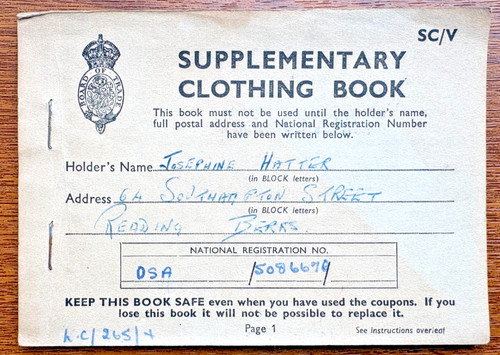 SC/V
BOARD OF TRADE
SUPPLEMENTARY
CLOTHING BOOK
This book must not be used until the holder's name,
full postal address and National Registration Number
have been written below.
Holder's Name JOSEPHINE HATTER
(in BLOCK letters)
Address 64 SOUTHAMPTON STREET
(in BLOCK letters)
READING BERKS.
NATIONAL REGISTRATION NO.
DSA /5086679
KEEP THIS BOOK SAFE even when you have used the coupons. If you
lose this book it will not be possible to replace it.
Page 1
See Instructions overleaf